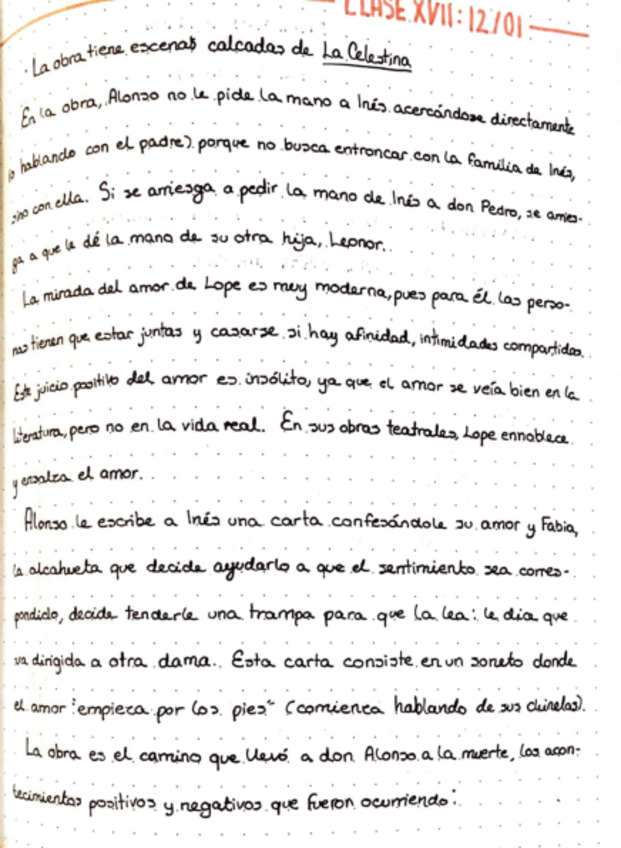 CLASE XVII: 12/01
· La obra tiene escenas calcadas de La Celestina
En la obra, Alonso no le pide la mano a Inés acercándose directamente
(o hablando con el padre) porque no busca entroncar con la familia de Inés,
sino con ella. Si se arriesga a pedir la mano de Inés a don Pedro, se arries-
ga a que le dé la mano de su otra hija, Leonor.
La mirada del amor de Lope es muy moderna, pues para él las perso-
nas tienen que estar juntas y casarse si hay afinidad, intimidades compartidas.
Este juicio positivo del amor es insólito, ya que el amor se veía bien en la
literatura, pero no en la vida real. En sus obras teatrales, Lope ennoblece
y ensalza el amor.
Alonso le escribe a Inés una carta confesándole su amor y Fabia,
la alcahueta que decide ayudarlo a que el sentimiento sea corres-
pondido, decide tenderle una trampa para que la lea: le dia que
va dirigida a otra dama. Esta carta consiste en un soneto donde
el amor "empieza por los pies" (comienza hablando de sus chinelas).
La obra es el camino que llevó a don Alonso a la muerte, los acon-
tecimientos positivos y negativos que fueron ocurriendo: